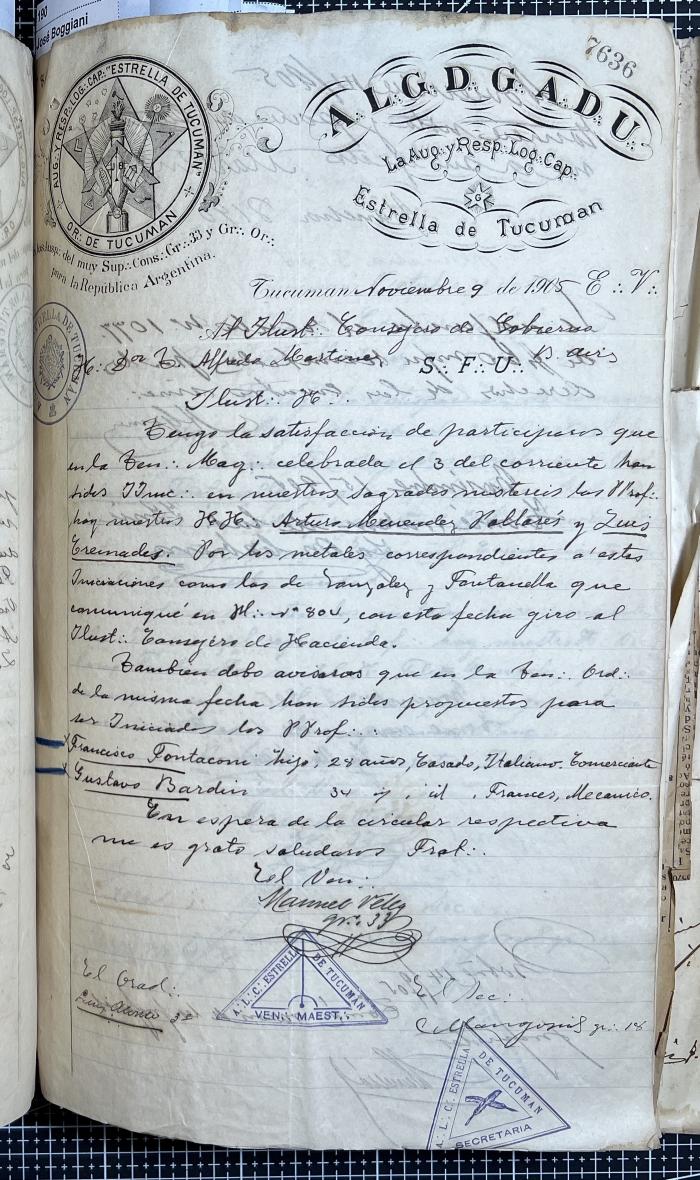 190
José Boggiani
7636
AUG∴ Y RESP∴ LOG∴ CAP∴ "ESTRELLA DE TUCUMAN"
OR∴ DE TUCUMAN
A∴L∴G∴D∴G∴A∴D∴U∴
La Aug∴ y Resp∴ Log∴ Cap∴
G
Estrella de Tucuman
del muy Sup∴ Cons∴ Gr∴ 33 y Gr∴ Or∴
para la República Argentina.
Tucuman Noviembre 9 de 1905 E∴ V∴
Al Ilust∴ Consejero de Gobierno
H∴ Dor D. Alfredo Martinez S∴ F∴ U∴ B. aires
Ilust∴ H∴
Tengo la satisfacción de participaros que
en la Ten∴ Mag∴ celebrada el 3 del corriente han
sidos Inic∴ en nuestros sagrados misterios los PProf∴
hoy nuestros HH∴ Arturo Menendez Pallarés y Luis
Cremades. Por los metales correspondientes a' estas
Iniciaciones como las de Gonzalez y Fontanella que
comuniqué en Pl∴ nº 804, con esta fecha giro al
Ilust∴ Consejero de Hacienda.
Tambien debo avisaros que en la Ten∴ Ord∴
de la misma fecha han sidos propuestos para
ser Iniciados los PProf∴:
Francisco Fontaconi hijo, 28 años, Casado, Italiano. Comerciante
Gustavo Bardin 34 " , id , Frances, Mecanico.
En espera de la circular respectiva
me es grato saludaros Frat∴
El Ven∴
Manuel Velez
gr∴ 33
A∴ L∴ C∴ ESTRELLA DE TUCUMAN
VEN∴ MAEST∴
El Orad∴
El Sec∴
gr∴ 18
A∴ L∴ C∴ ESTRELLA DE TUCUMAN
SECRETARIA